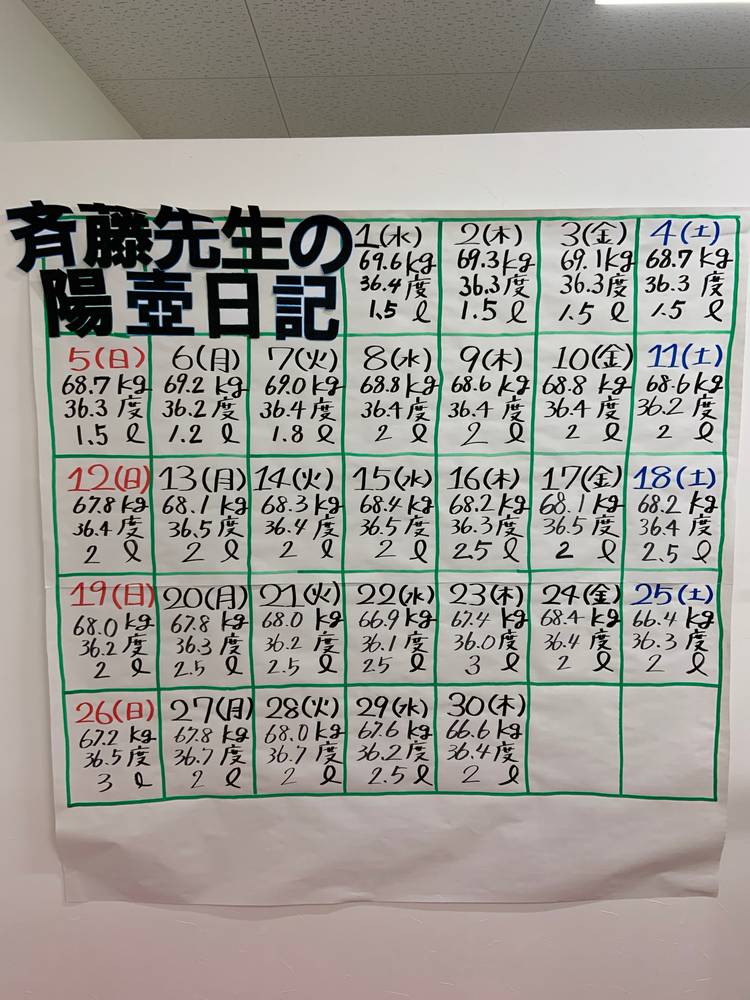 斉藤先生の
陽壺日記
1(水)
69.6kg
36.4度
1.5 ℓ
2(木)
69.3kg
36.3度
1.5 ℓ
3(金)
69.1kg
36.3度
1.5 ℓ
4(土)
68.7kg
36.3度
1.5 ℓ
5(日)
68.7kg
36.3度
1.5 ℓ
6(月)
69.2kg
36.2度
1.2 ℓ
7(火)
69.0kg
36.4度
1.8 ℓ
8(水)
68.8kg
36.4度
2 ℓ
9(木)
68.6kg
36.4度
2 ℓ
10(金)
68.8kg
36.4度
2 ℓ
11(土)
68.6kg
36.2度
2 ℓ
12(日)
67.8kg
36.4度
2 ℓ
13(月)
68.1kg
36.5度
2 ℓ
14(火)
68.3kg
36.4度
2 ℓ
15(水)
68.4kg
36.5度
2 ℓ
16(木)
68.2kg
36.3度
2.5 ℓ
17(金)
68.1kg
36.5度
2 ℓ
18(土)
68.2kg
36.4度
2.5 ℓ
19(日)
68.0kg
36.2度
2 ℓ
20(月)
67.8kg
36.3度
2.5 ℓ
21(火)
68.0kg
36.2度
2.5 ℓ
22(水)
66.9kg
36.1度
2.5 ℓ
23(木)
67.4kg
36.0度
3 ℓ
24(金)
68.4kg
36.4度
2 ℓ
25(土)
66.4kg
36.3度
2 ℓ
26(日)
67.2kg
36.5度
3 ℓ
27(月)
67.8kg
36.7度
2 ℓ
28(火)
68.0kg
36.7度
2 ℓ
29(水)
67.6kg
36.2度
2.5 ℓ
30(木)
66.6kg
36.4度
2 ℓ